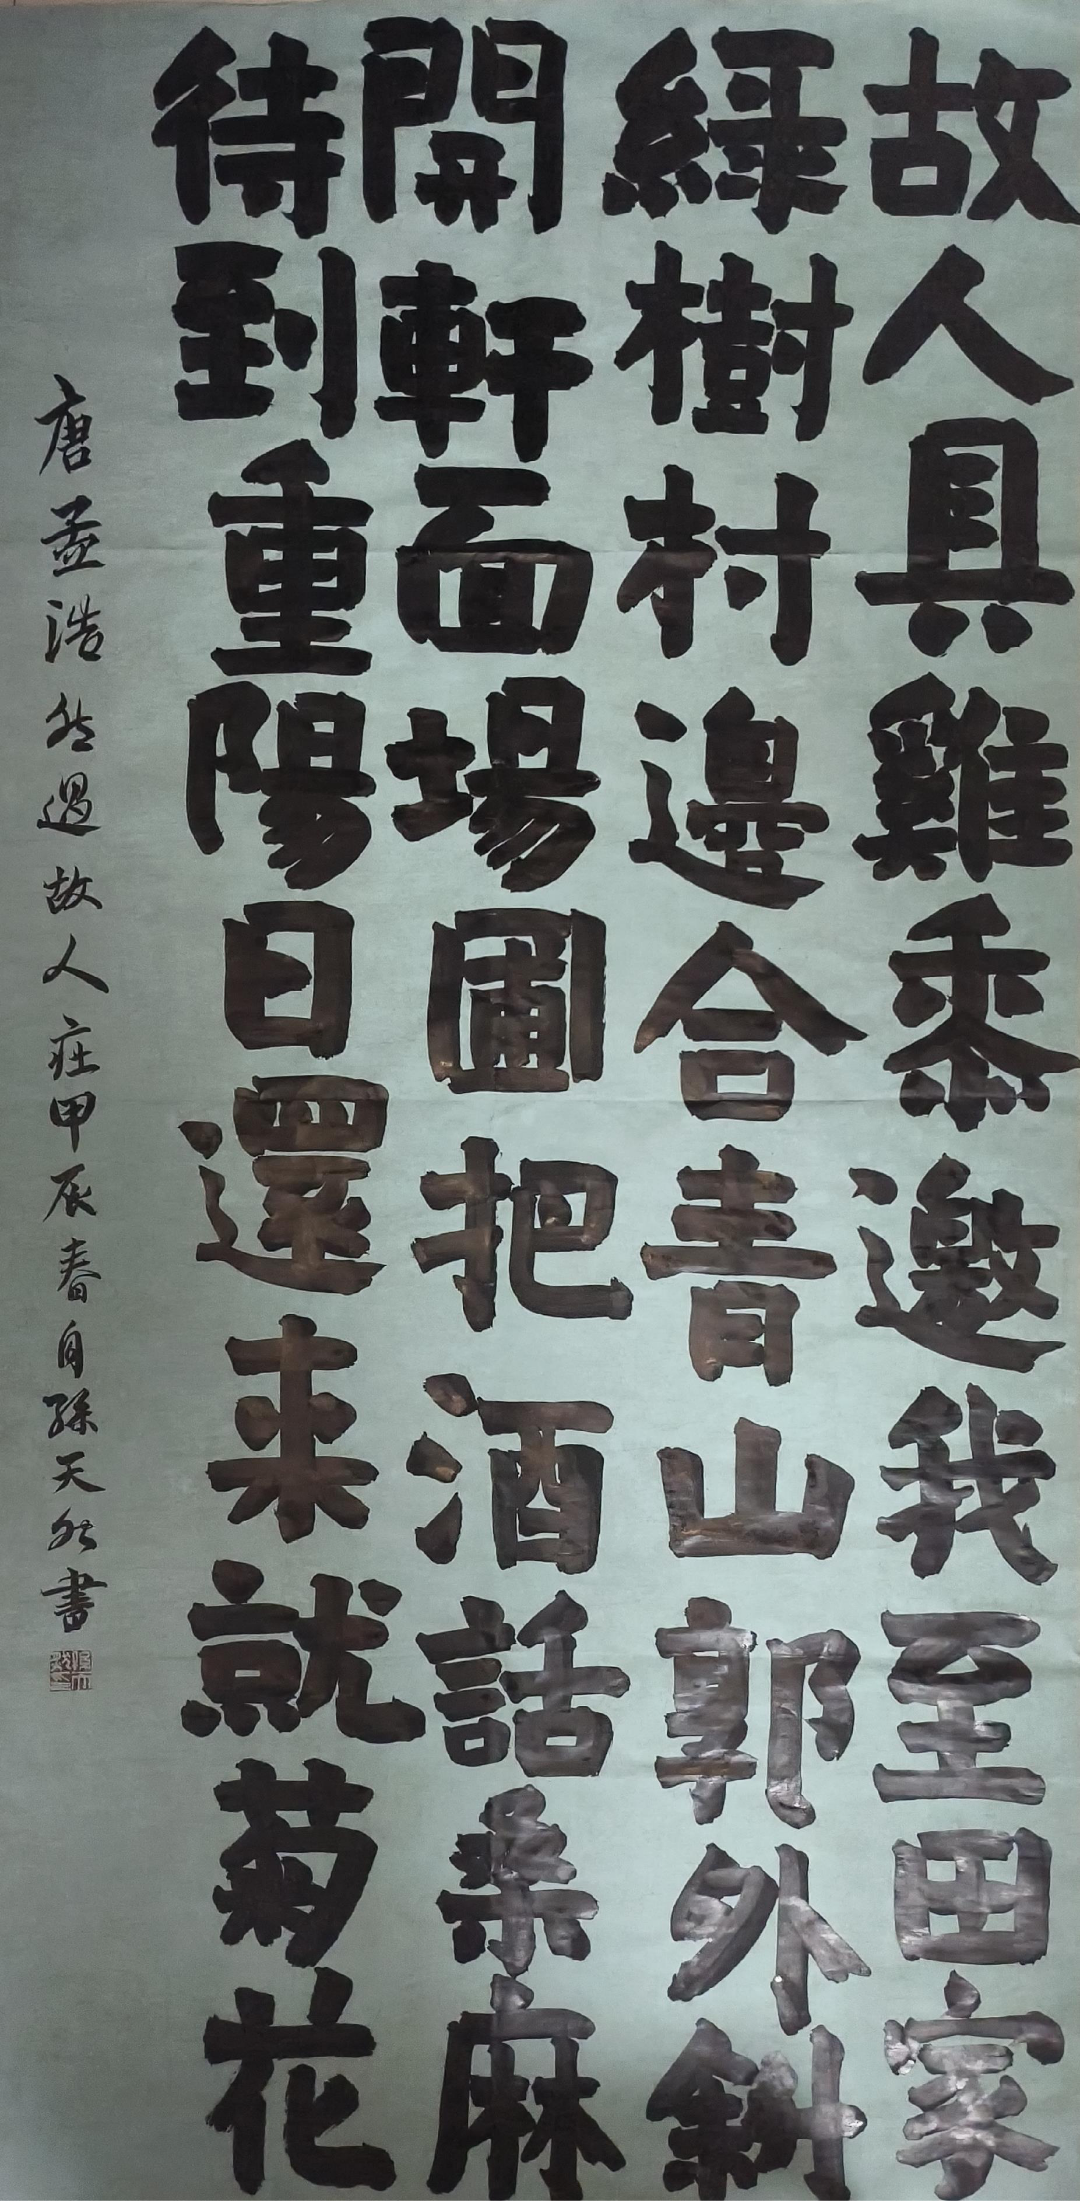 故人具雞黍邀我至田家
緑樹村邊合青山郭外斜
開軒面場圃把酒話桑麻
待到重陽日還来就菊花
唐孟浩然過故人莊甲辰春月孫天然書